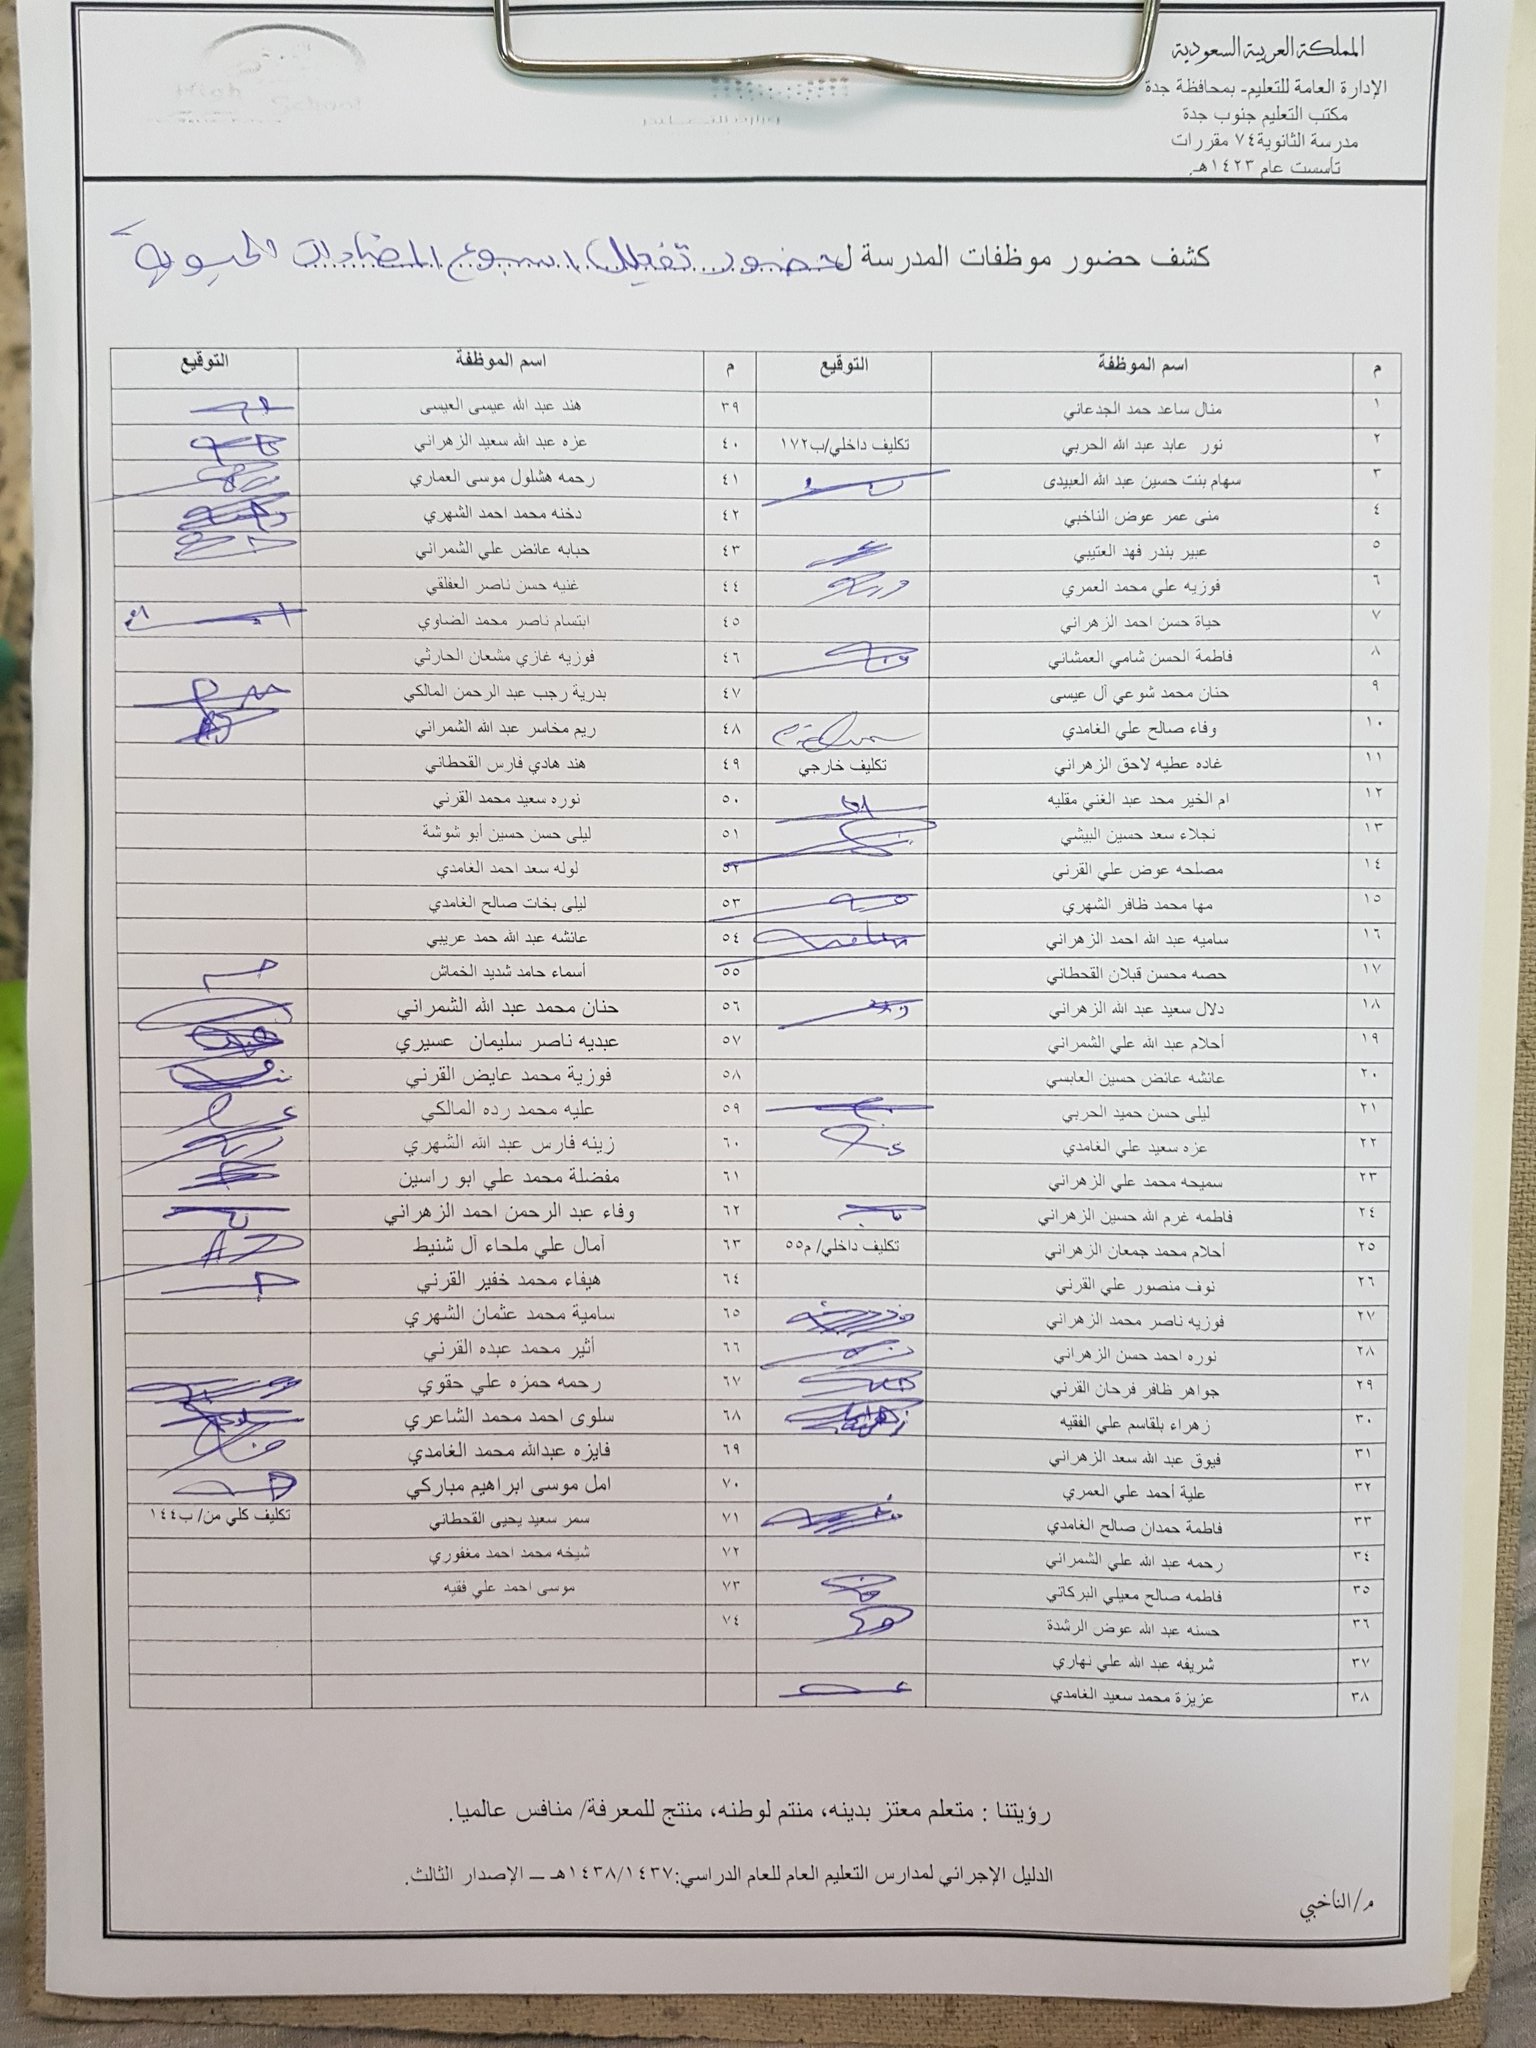 المملكة العربية السعودية
الإدارة العامة للتعليم- بمحافظة جدة
مكتب التعليم جنوب جدة
مدرسة الثانوية ٧٤ مقررات
تأسست عام ١٤٢٣هـ.
High School
كشف حضور موظفات المدرسة لحضور تفعيل اسبوع المضادات الحيوية
م اسم الموظفة التوقيع م اسم الموظفة التوقيع
١ منال ساعد حمد الجدعاني ٣٩ هند عبد الله عيسى العيسى
٢ نور عابد عبد الله الحربي تكليف داخلي/ب١٧٢ ٤٠ عزه عبد الله سعيد الزهراني
٣ سهام بنت حسين عبد الله العبيدى ٤١ رحمه هشلول موسى العماري
٤ منى عمر عوض الناخبي ٤٢ دخنه محمد احمد الشهري
٥ عبير بندر فهد العتيبي ٤٣ حبابه عائض علي الشمراني
٦ فوزيه علي محمد العمري ٤٤ غنيه حسن ناصر العفلقي
٧ حياة حسن احمد الزهراني ٤٥ ابتسام ناصر محمد الضاوي
٨ فاطمة الحسن شامي العمشاني ٤٦ فوزيه غازي مشعان الحارثي
٩ حنان محمد شوعي آل عيسى ٤٧ بدرية رجب عبد الرحمن المالكي
١٠ وفاء صالح علي الغامدي ٤٨ ريم مخاسر عبد الله الشمراني
١١ غاده عطيه لاحق الزهراني تكليف خارجي ٤٩ هند هادي فارس القحطاني
١٢ ام الخير محد عبد الغني مقليه ٥٠ نوره سعيد محمد القرني
١٣ نجلاء سعد حسين البيشي ٥١ ليلى حسن حسين أبو شوشة
١٤ مصلحه عوض علي القرني ٥٢ لوله سعد احمد الغامدي
١٥ مها محمد ظافر الشهري ٥٣ ليلى بخات صالح الغامدي
١٦ ساميه عبد الله احمد الزهراني ٥٤ عائشه عبد الله حمد عريبي
١٧ حصه محسن قبلان القحطاني ٥٥ أسماء حامد شديد الخماش
١٨ دلال سعيد عبد الله الزهراني ٥٦ حنان محمد عبد الله الشمراني
١٩ أحلام عبد الله علي الشمراني ٥٧ عبديه ناصر سليمان عسيري
٢٠ عائشه عائض حسين العابسي ٥٨ فوزية محمد عايض القرني
٢١ ليلى حسن حميد الحربي ٥٩ عليه محمد رده المالكي
٢٢ عزه سعيد علي الغامدي ٦٠ زينه فارس عبد الله الشهري
٢٣ سميحه محمد علي الزهراني ٦١ مفضلة محمد علي ابو راسين
٢٤ فاطمه غرم الله حسين الزهراني ٦٢ وفاء عبد الرحمن احمد الزهراني
٢٥ أحلام محمد جمعان الزهراني تكليف داخلي/ م٥٥ ٦٣ أمال علي ملحاء آل شنيط
٢٦ نوف منصور علي القرني ٦٤ هيفاء محمد خفير القرني
٢٧ فوزيه ناصر محمد الزهراني ٦٥ سامية محمد عثمان الشهري
٢٨ نوره احمد حسن الزهراني ٦٦ أثير محمد عبده القرني
٢٩ جواهر ظافر فرحان القرني ٦٧ رحمه حمزه علي حقوي
٣٠ زهراء بلقاسم علي الفقيه ٦٨ سلوى احمد محمد الشاعري
٣١ فيوق عبد الله سعد الزهراني ٦٩ فايزه عبدالله محمد الغامدي
٣٢ علية أحمد علي العمري ٧٠ امل موسى ابراهيم مباركي
٣٣ فاطمة حمدان صالح الغامدي ٧١ سمر سعيد يحيى القحطاني تكليف كلي من/ ب١٤٤
٣٤ رحمه عبد الله علي الشمراني ٧٢ شيخه محمد احمد مغفوري
٣٥ فاطمه صالح معيلي البركاتي ٧٣ موسى احمد علي فقيه
٣٦ حسنه عبد الله عوض الرشدة ٧٤
٣٧ شريفه عبد الله علي نهاري
٣٨ عزيزة محمد سعيد الغامدي
رؤيتنا : متعلم معتز بدينه، منتم لوطنه، منتج للمعرفة/ منافس عالميا.
الدليل الإجرائي لمدارس التعليم العام للعام الدراسي:١٤٣٨/١٤٣٧هـ ــ الإصدار الثالث.
م/الناخبي